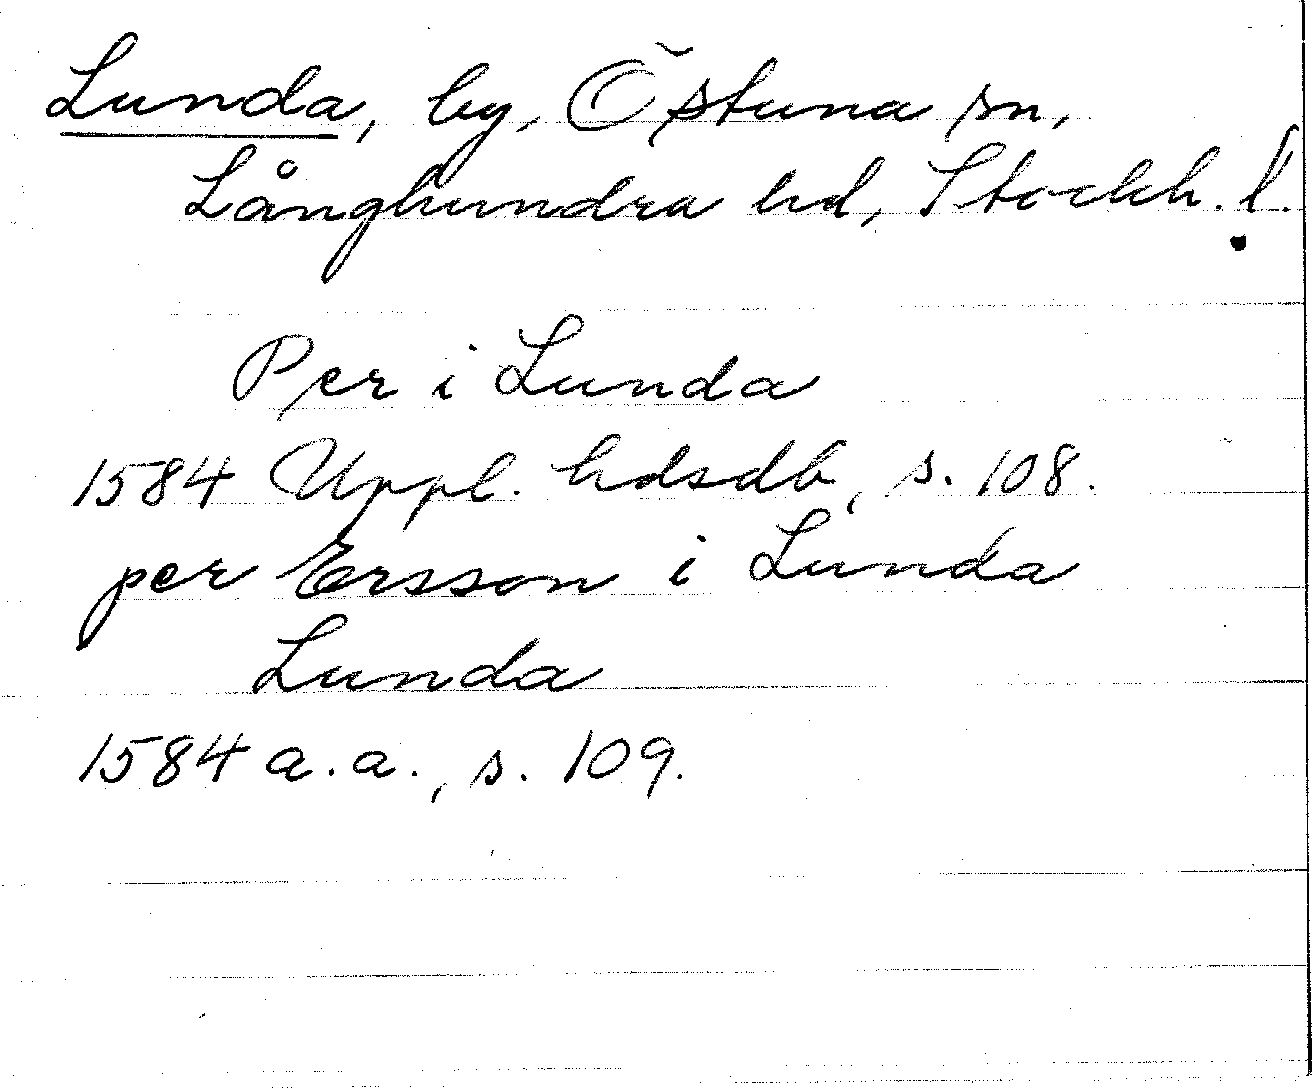 Lunda, by, Östuna sn,
Långhundra hd, Stockh. l.
Per i Lunda
1584 Uppl. hdsdb, s. 108.
per Ersson i Lunda
Lunda
1584 a.a., s. 109.